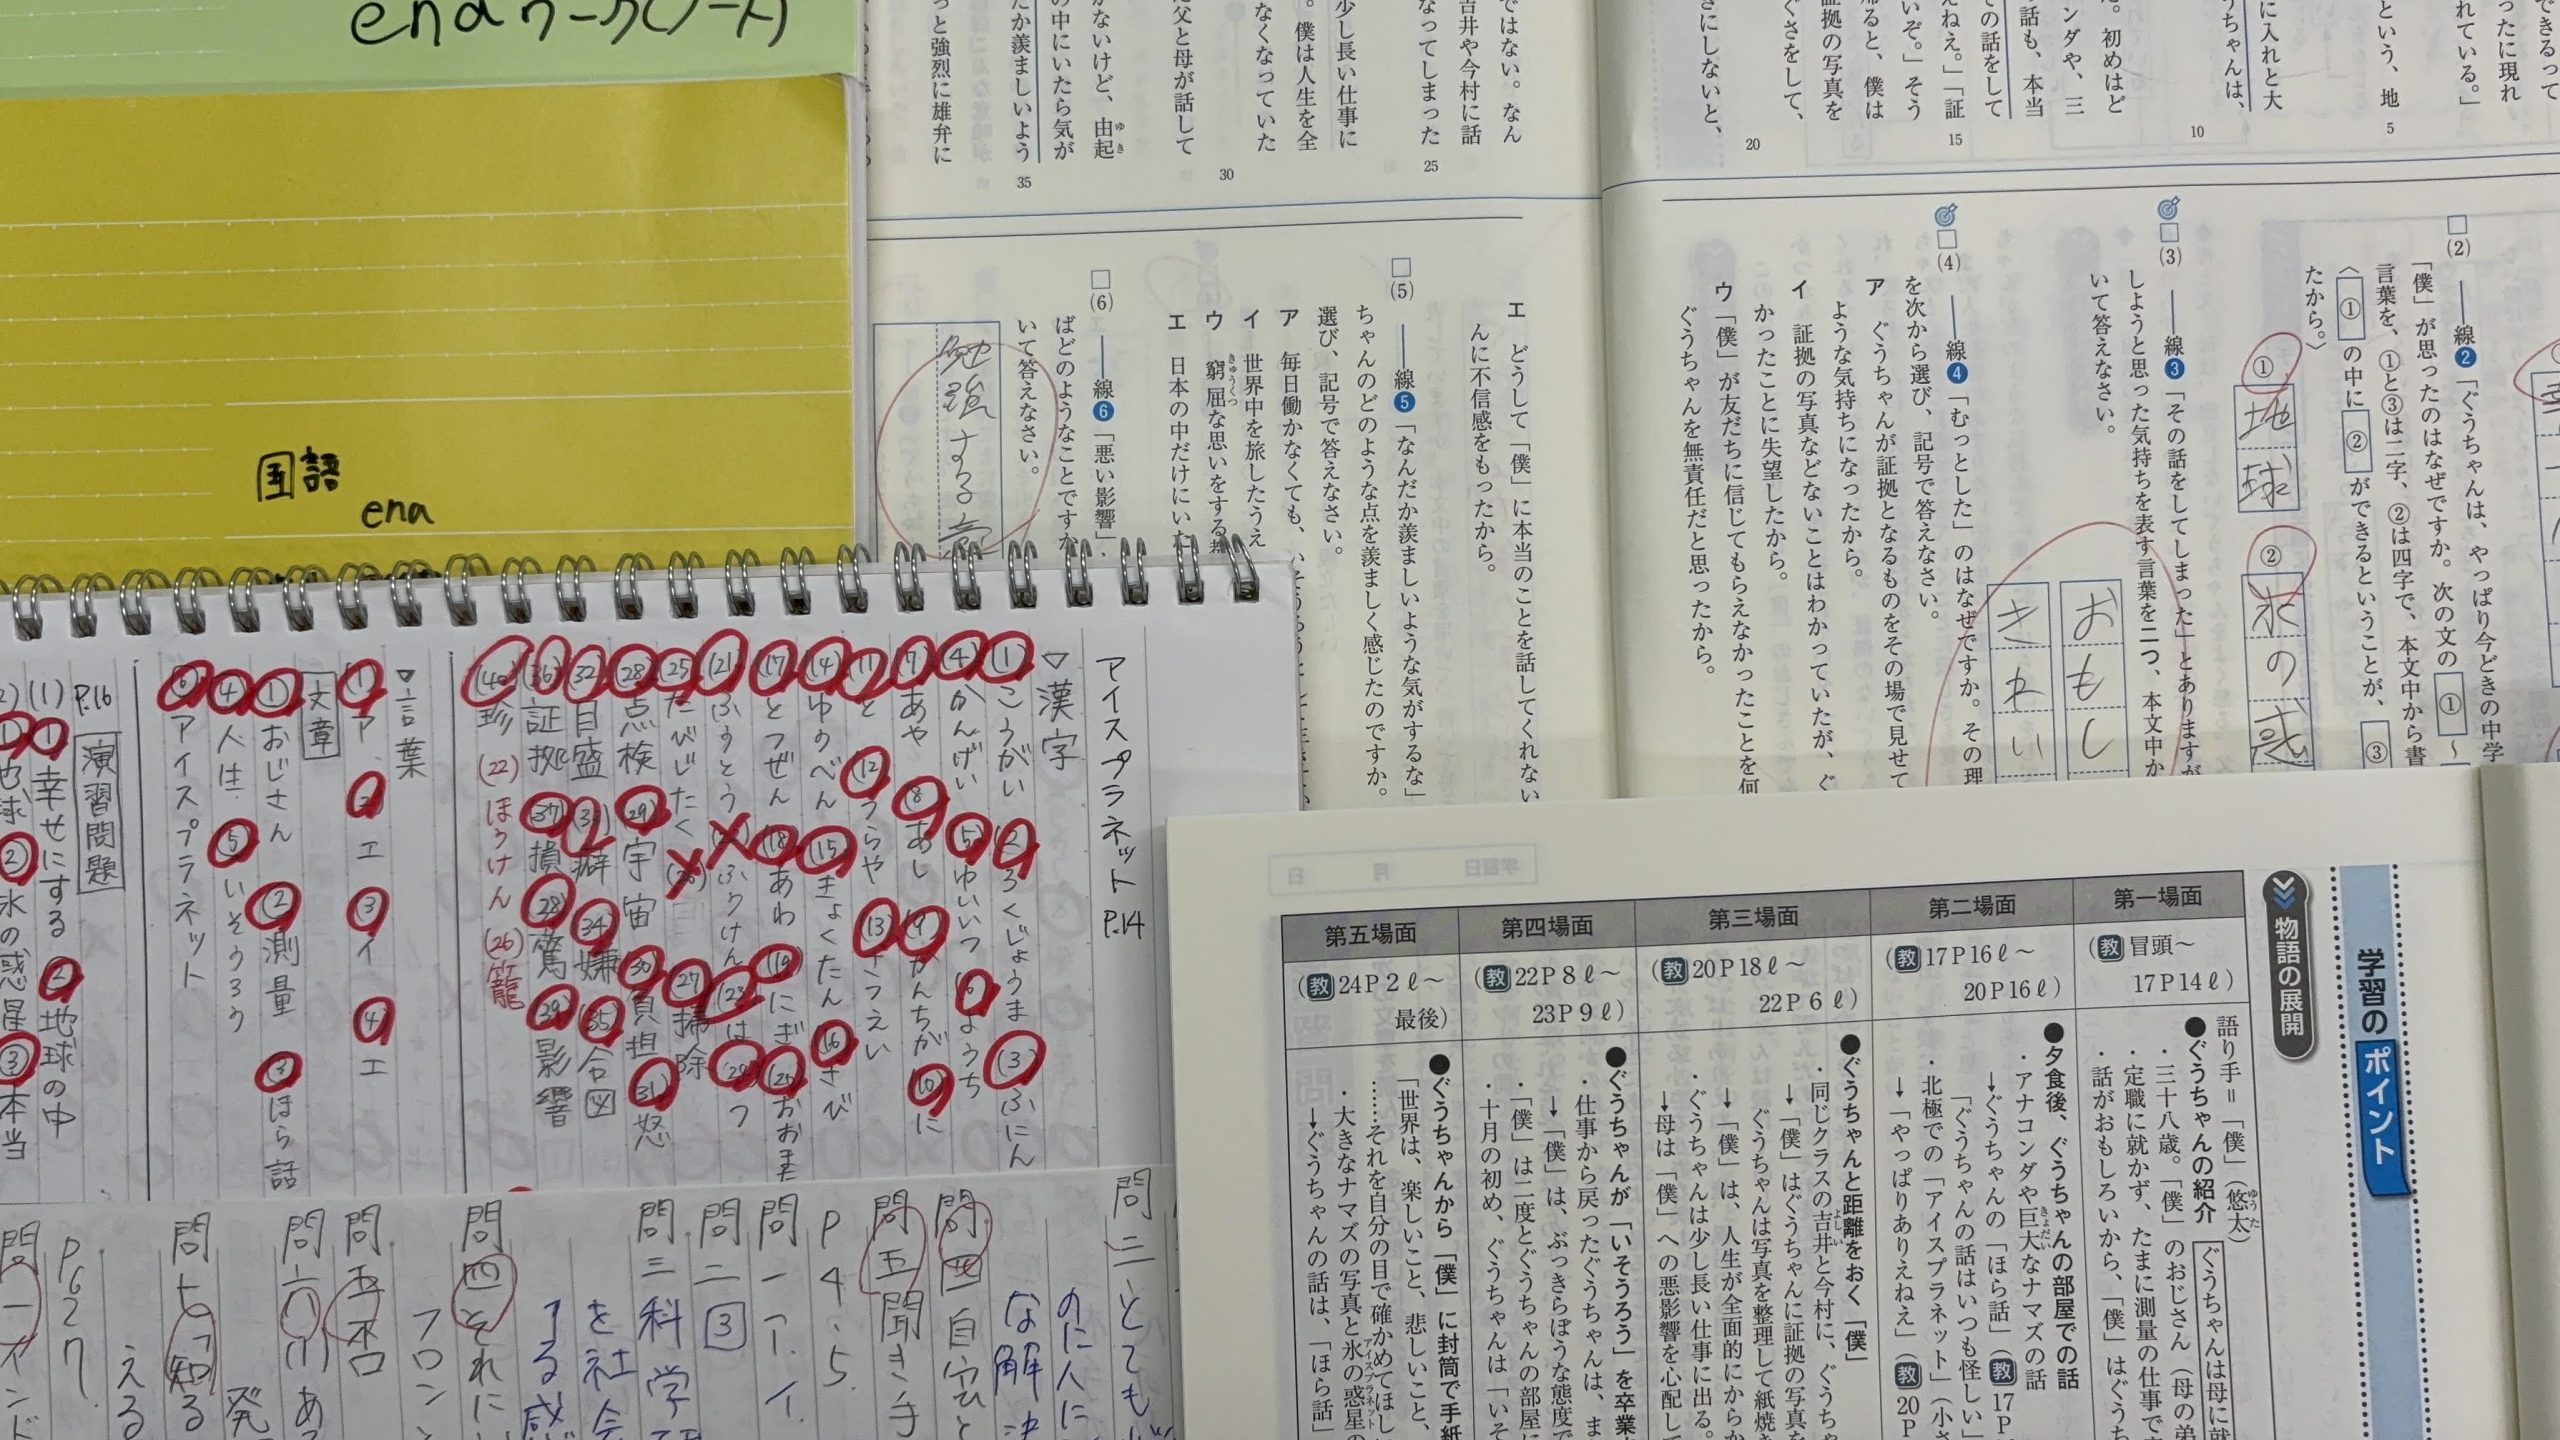 enaワーク(ノート)
国語
ena
ではない。なん
吉井や今村に話
なってしまった
少し長い仕事に
。僕は人生を全
なくなっていた
父と母が話して
がないけど、由起
の中にいたら気が
たか羨ましいよう
っと強烈に雄弁に
25
30
35
できるって
ったに現れ
れている。」
という、地
に入れと大
うちゃんは、
。初めはど
ンダや、三
話も、本当
ての話をして
えねえ。」「証
いぞ。」そう
帰ると、僕は
証拠の写真を
ぐさをして、
きにしないと、
5
10
15
20
□(2) ――線❷「ぐうちゃんは、やっぱり今どきの中学
「僕」が思ったのはなぜですか。次の文の①～
言葉を、①と③は二字、②は四字で、本文中から書
〈①の中に②ができるということが、③
たから。〉
① 地球
② 氷の惑
□(3) ――線❸「その話をしてしまった」とありますが
しようと思った気持ちを表す言葉を二つ、本文中か
いて答えなさい。
おもし
きれい
□(4) ――線❹「むっとした」のはなぜですか。その理
を次から選び、記号で答えなさい。
ア ぐうちゃんが証拠となるものをその場で見せて
ような気持ちになったから。
イ 証拠の写真などないことはわかっていたが、ぐ
かったことに失望したから。
ウ 「僕」が友だちに信じてもらえなかったことを何
ぐうちゃんを無責任だと思ったから。
エ どうして「僕」に本当のことを話してくれない
んに不信感をもったから。
□(5) ――線❺「なんだか羨ましいような気がするな」
ちゃんのどのような点を羨ましく感じたのですか。
選び、記号で答えなさい。
ア 毎日働かなくても、
イ 世界中を旅したうえ
ウ 窮屈な思いをする
エ 日本の中だけにいた
□(6) ――線❻「悪い影響」
ばどのようなことですか
いて答えなさい。
勉強する
アイスプラネット P.14
▽漢字
(1)こうがい (2)ろくじょうま (3)ふにん
(4)かんげい (5)ゆいいつ (6)ようち
(7)あや (8)あし (9)かんちが (10)に
(11)と (12)うらや (13)さつえい
(14)ゆうべん (15)きょくたん (16)さび
(17)とつぜん (18)あわ (19)にぎ (20)おおまた
(21)ふうとう ふうけん (23)は (24)つ
(25)たびじたく (26) (27)掃除
(28)点検 (29)宇宙 (30)負担 (31)怒
(32)目盛 (33)癖 (34)嫌 (35)合図
(36)証拠 (37)損 (38)驚 (39)影響
(40)珍 (22)ほうけん (26)籠
▽言葉
(1)ア (2)エ (3)イ (4)エ
文章
①おじさん ②測量 ③ほら話
④人生 ⑤いそうろう
⑥アイスプラネット
P.16 演習問題
(1)①幸せにする ②地球の中
(2)①地球 ②氷の惑星 ③本当
問三とても
のに人に
な解決
問四自分と
問五聞き手
P4、5
問一ア、イ
問二③
問三科学
を社会
する感
問四それに
フロン
問五否
問六(1)あ
発
問七「知る
える
P627
問一インド
学習のポイント
物語の展開
第一場面
(教冒頭～
17P14ℓ)
語り手＝「僕」(悠太)
●ぐうちゃんの紹介 ぐうちゃんは母に就
・三十八歳。「僕」のおじさん(母の弟
・定職に就かず、たまに測量の仕事で
・話がおもしろいから、「僕」はぐうち
第二場面
(教17P16ℓ～
20P16ℓ)
●夕食後、ぐうちゃんの部屋での話
・アナコンダや巨大なナマズの話
→ぐうちゃんの「ほら話」(教17P
「ぐうちゃんの話はいつも怪しい」
・北極での「アイスプラネット」(小さ
→「やっぱりありえねえ」(教20P
第三場面
(教20P18ℓ～
22P6ℓ)
●ぐうちゃんと距離をおく「僕」
・同じクラスの吉井と今村に、ぐうちゃ
→「僕」はぐうちゃんに証拠の写真を
ぐうちゃんは写真を整理して紙焼き
→「僕」は、人生が全面的にからか
・ぐうちゃんは少し長い仕事に出る。
→母は「僕」への悪影響を心配して
第四場面
(教22P8ℓ～
23P9ℓ)
●ぐうちゃんが「いそうろう」を卒業
・仕事から戻ったぐうちゃんは、ま
→「僕」は、ぶっきらぼうな態度で
・「僕」は二度とぐうちゃんの部屋に
・十月の初め、ぐうちゃんは「いそ
第五場面
(教24P2ℓ～
最後)
●ぐうちゃんから「僕」に封筒で手紙
「世界は、楽しいこと、悲しいこと、
……それを自分の目で確かめてほし
・大きなナマズの写真と氷の惑星の
→ぐうちゃんの話は、「ほら話」